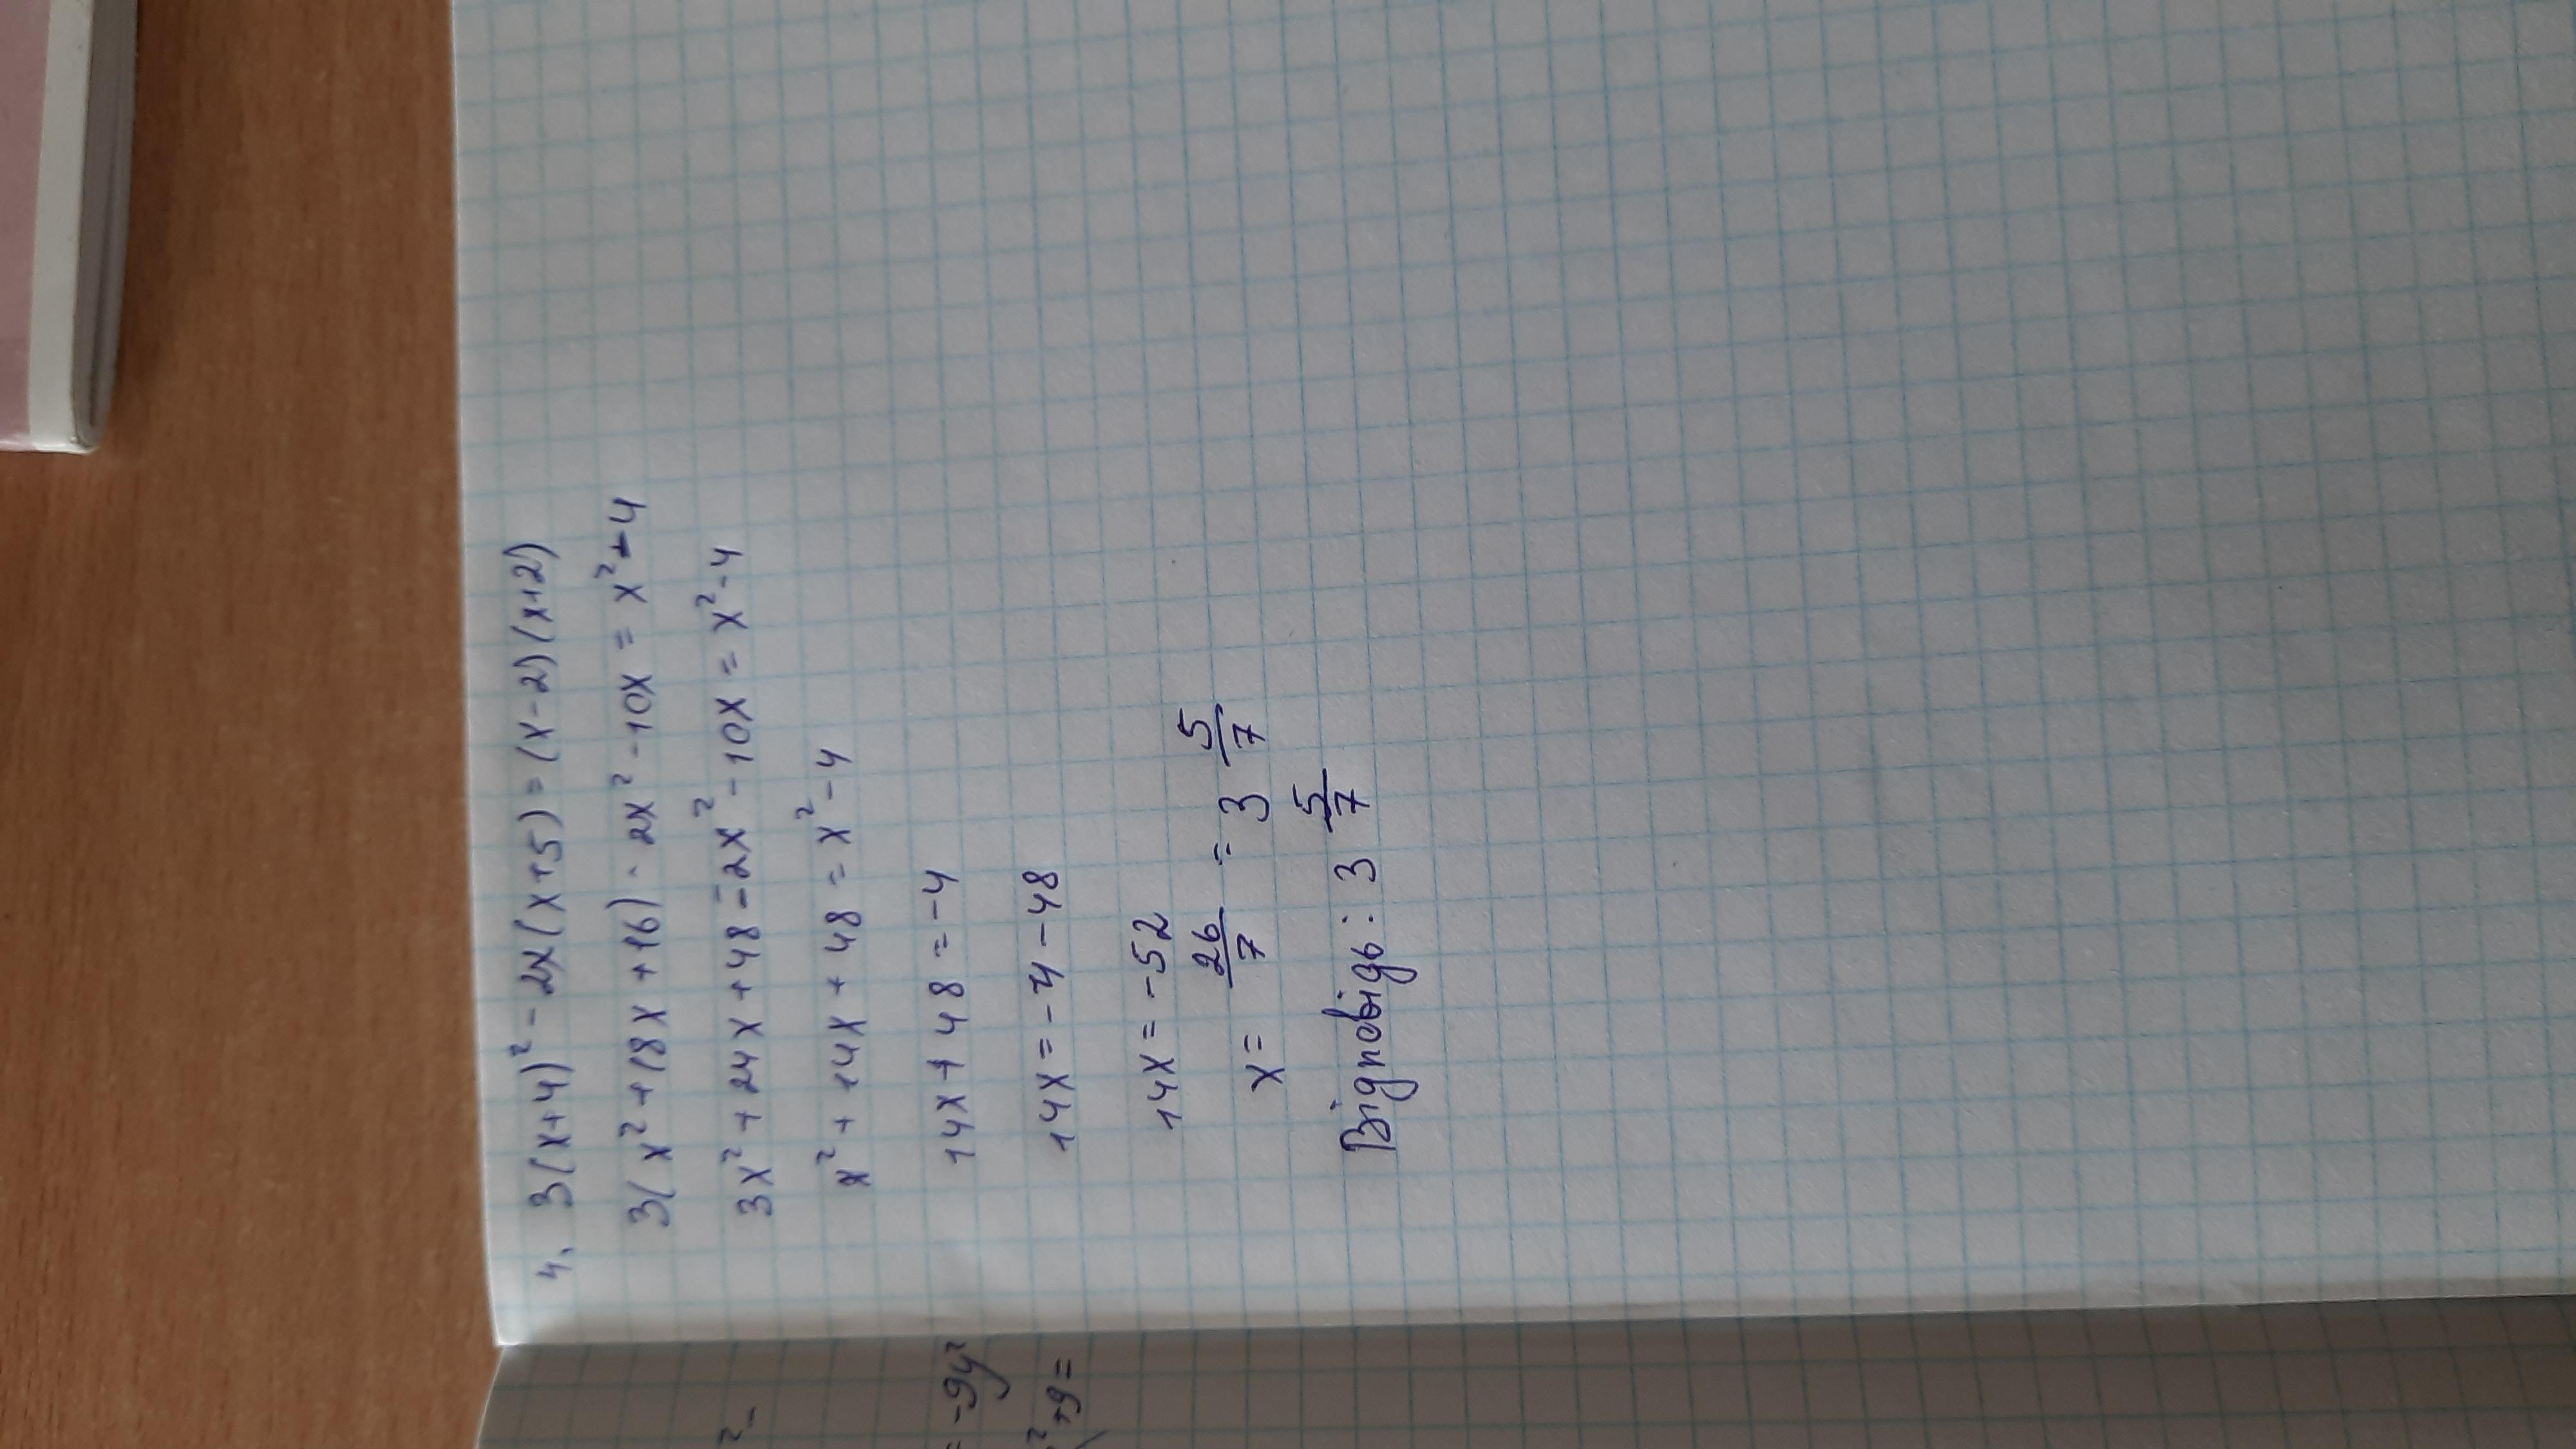 4. 3(x+4)² - 2x(x+5) = (x-2)(x+2)
3(x²+18x+16) - 2x² - 10x = x² - 4
3x² + 24x + 48 - 2x² - 10x = x² - 4
x² + 14x + 48 = x² - 4
14x + 48 = -4
14x = -4 - 48
14x = -52
x = 26/7 = 3 5/7
Відповідь: 3 5/7
²-
= -9y²
²+9=